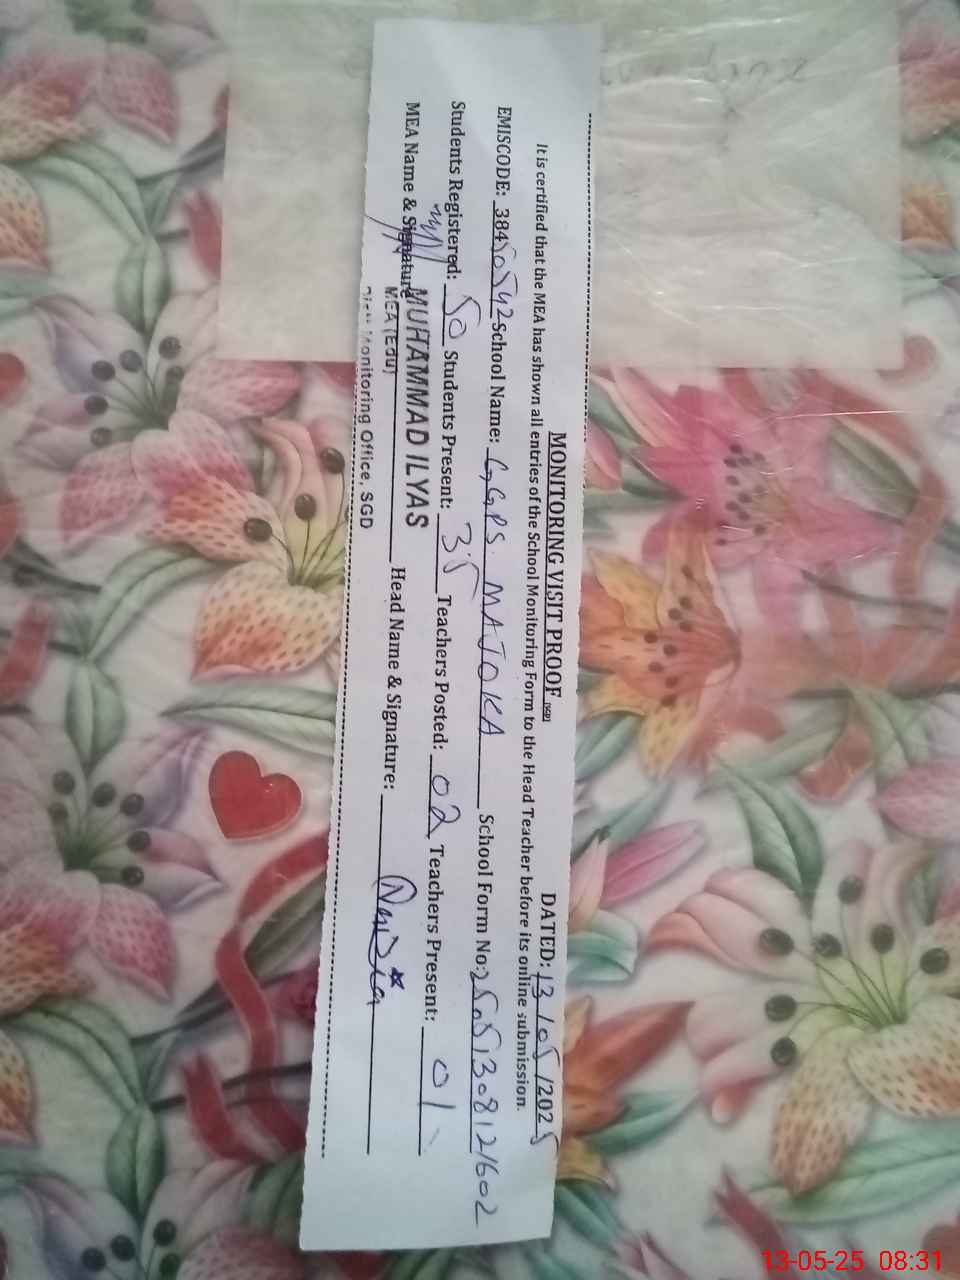 MONITORING VISIT PROOF (SGD) DATED: 13/05/2025
It is certified that the MEA has shown all entries of the School Monitoring Form to the Head Teacher before its online submission.
EMISCODE: 38450542 School Name: GGPS. MAJOKA School Form No: 25051308121602
Students Registered: 50 Students Present: 35 Teachers Posted: 02 Teachers Present: 01
MEA Name & Signature MUHAMMAD ILYAS Head Name & Signature:
MEA (Edu)
Monitoring Office, SGD
13-05-25 08:31